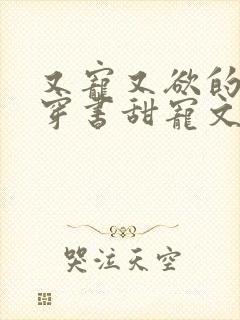 又寵又欲的
穿書甜寵文
哭泣天空